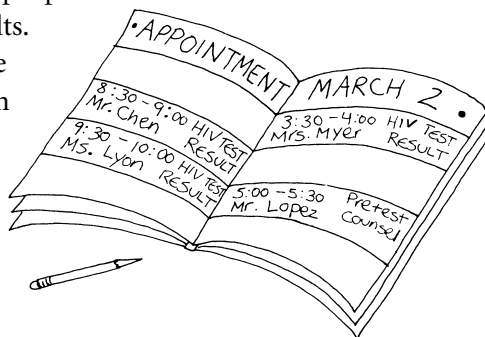 lts.
e
n
APPOINTMENT
8:30 - 9:00 HIV TEST
Mr. Chen RESULT
9:30 - 10:00 HIV TEST
Ms. Lyon RESULT
MARCH 2
3:30 - 4:00 HIV TEST
Mrs. Myer RESULT
5:00 - 5:30 Pretest
Mr. Lopez Counsel